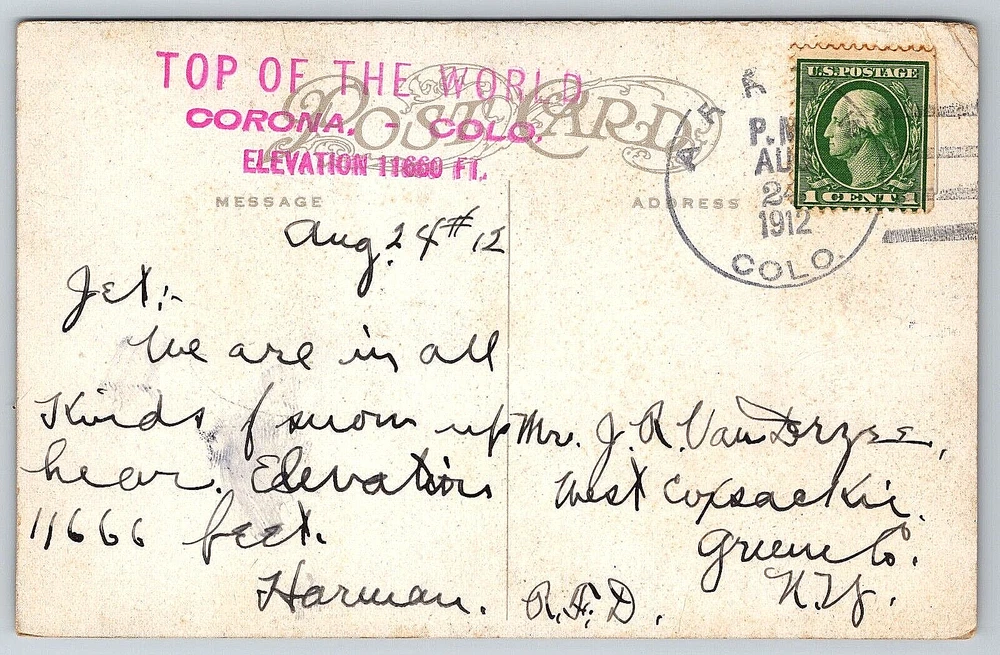 TOP OF THE WORLD
CORONA, - COLO.
ELEVATION 11660 FT.
POST CARD
MESSAGE
ADDRESS
U.S.POSTAGE
1 CENT 1
P.M
AUG
24
1912
COLO.
Aug. 24th 12
Jet:-
We are in all
Kinds of snow up
hear. Elevation
11666 feet.
Harman.
Mr. J. R. VanDerzee,
West Coxsackie.
Green Co.
N.Y.
R.F.D.